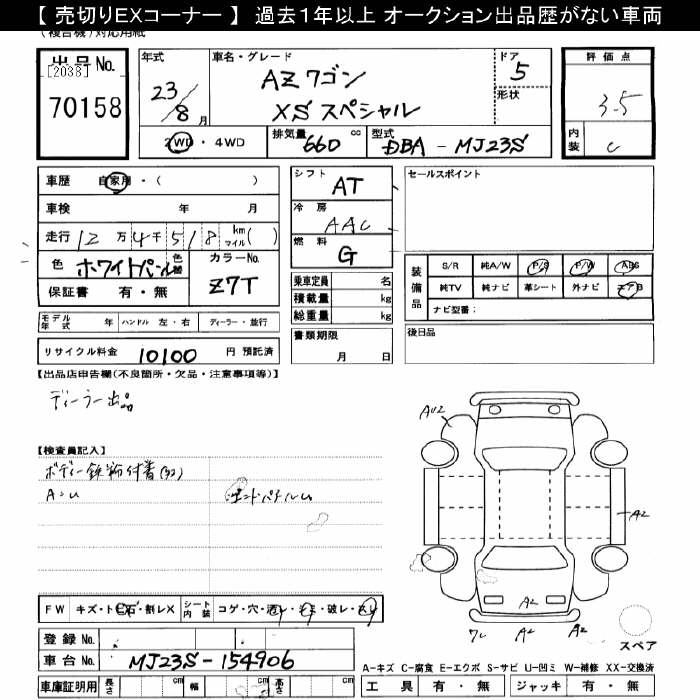 【 売切りEXコーナー 】 過去1年以上 オークション出品歴がない車両
(複合機)対応用紙
出品No.
[2038]
70158
年式 23/8月
車名・グレード
AZワゴン
XSスペシャル
ドア 5
形状
2WD・4WD
排気量 660 cc
型式 DBA-MJ23S
評価点
3.5
内装 C
車歴 自家用・( )
車検 年 月
走行 12万4千518 km マイル( )
色 ホワイトパール 色替
カラーNo. Z7T
保証書 有・無
シフト AT
冷房 AAC
燃料 G
セールスポイント
乗車定員 名
積載量 kg
総重量 kg
書類期限
月 日
装備品
S/R 純A/W P/S P/W ABS
純TV 純ナビ 革シート 外ナビ エアB
ナビ型番:
後日品
モデル年式 年 ハンドル 左・右 ディーラー・並行
リサイクル料金 10100 円 預託済
【出品店申告欄(不良箇所・欠品・注意事項等)】
ディーラー出品
【検査員記入】
ボディー鉄粉付着
A・U
AU2
A2
A2
A2
A2
スペア
FW キズ・ト石・割レX
シート内装 コゲ・穴・汚レ・シミ・破レ・スレ
登録No.
車台No. MJ23S-154906
車庫証明用 長さ cm 幅 cm 高さ cm
A-キズ C-腐食 E-エクボ S-サビ U-凹ミ W-補修 XX-交換済
工具 有・無 ジャッキ 有・無